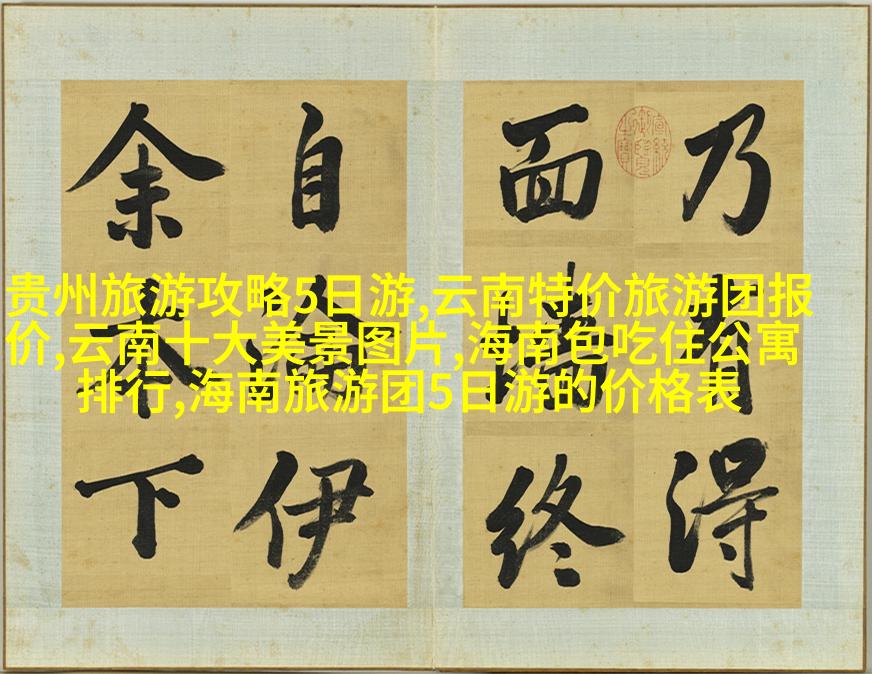 贵州旅游攻略5日游,云南特价旅游团报
价,云南十大美景图片,海南包吃住公寓
排行,海南旅游团5日游的价格表
乃有得
面終
自伊
余本下